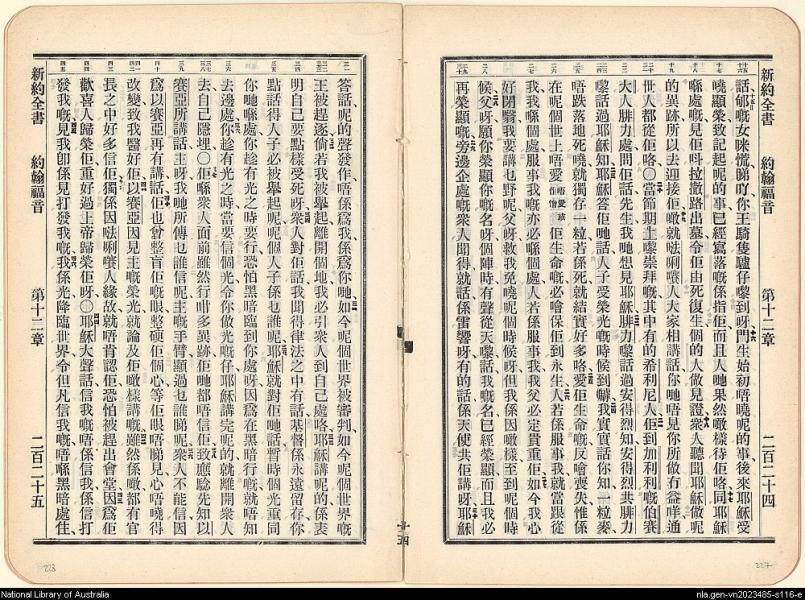 新約全書 約翰福音 第十二章 二百二十四
話𠸎嘅女咪慌睇吖你王騎隻驢仔嚟到呀門生始初唔曉呢的事後來耶穌受
嘵顯榮致記起呢的事已經寫落係指佢而且人哋果然噉樣待佢咯同耶穌
喺處嘅見佢呌拉撒路出墓令佢由死復生個的人做見證衆人聽聞耶穌做呢
的異跡所以去迎接佢噉就𠵽唎㘔人大家相講話你哋唔見你所做冇益咩通
世人都從佢咯〇當節期上嚟崇拜嘅其中有的希利尼人佢到加利利嘅伯賽
大人腓力處問佢話先生我哋想見耶穌腓力嚟話過安得烈知安得烈共腓力
嚟話過耶穌知耶穌答佢哋話人子受榮光嘅時候到囉我實實話你知一粒麥
唔跌落地死嘵就獨存一粒若係死就結實好多咯愛佢生命嘅反嚕喪失惟係
在呢個世上唔愛佢生命嘅必嚕保佢到永生人若係服事我就當跟從
我我喺個處服事我嘅亦必喺個處人若係服事我我父必定貴重佢如今我心
好閉翳我要講乜野呢父呀救我免嘵呢個時候呀但我係因噉樣至到呢個時
候父呀願你榮顯你嘅名呀個陣時有聲從天嚟話我嘅名已經榮顯而且我必
再榮顯嘅旁邊企處嘅衆人聞得就話係雷響呀有的話係天使共佢講呀耶穌
答話呢的聲發作唔係爲我係爲你哋如今呢個世界被審判如今呢個世界嘅
王被趕逐倘若我被舉起離開個地我必引衆人到自己處咯耶穌講呢的係表
明自己要點樣受死呀衆人對佢話我聞得律法之中有話基督係永遠留存你
點話得人子必被舉起呢呢個人子係乜誰呢耶穌就對佢哋話暫時個光重同
你哋喺處你趁有光之時要行恐怕黑暗臨到你處呀因爲在黑暗行嘅就唔知
去邊處你趁有光之時當要信個光令你做光嘅仔耶穌講完呢的就離開衆人
去自己隱埋〇佢喺衆人面前雖然行咁多異跡佢哋都唔信佢致應驗先知以
賽亞所講話主呀我哋所傳乜誰信呢主嘅手臂顯過乜誰睇呢衆人不能信因
爲以賽亞再有講話佢也曾整盲佢嘅眼整硬佢個心等佢眼唔睇見心唔曉得
改變致我醫好佢以賽亞因見主嘅榮光就論及佢噉樣講嘅雖然係噉都有官
長之中好多信佢獨係因𠵽唎㘔人緣故就唔肯認佢恐怕被趕出會堂因爲佢
歡喜人歸榮佢重好過上帝歸榮佢呀〇耶穌大聲話信我嘅唔係信我係信打
發我嘅見我卽係見打發我嘅我係光降臨世界令但凡信我嘅唔喺黑暗處住
新約全書 約翰福音 第十二章 二百二十五
223
227
National Library of Australia
nla.gen-vn2023485-s116-e